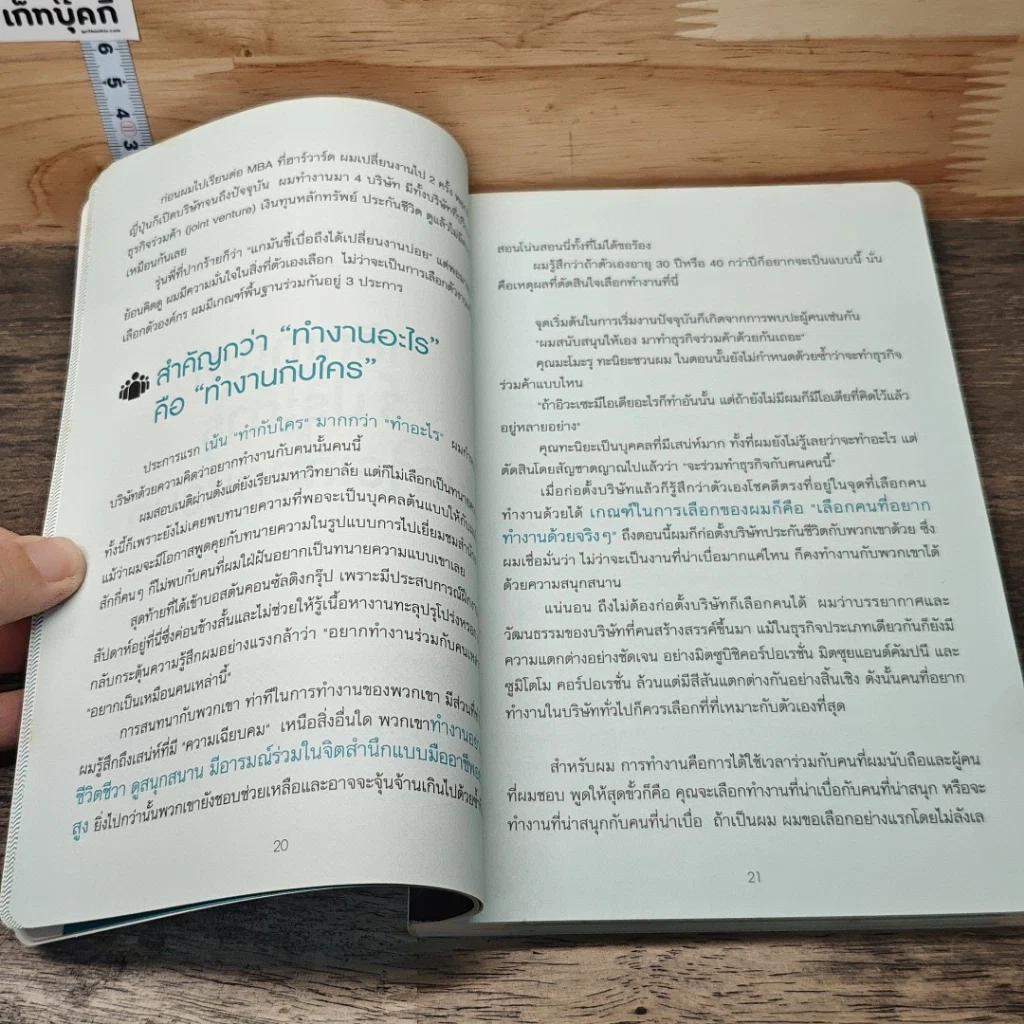 เก็ทบุ๊คกี้
6
5
4
3
ก่อนผมไปเรียนต่อ MBA ที่ฮาร์วาร์ด ผมเปลี่ยนงานไป 2 ครั้ง
ญี่ปุ่นก็เปิดบริษัทจนถึงปัจจุบัน ผมทำงานมา 4 บริษัท มีทั้งบริษัทที่ปรึกษา
ธุรกิจร่วมค้า (joint venture) เงินทุนหลักทรัพย์ ประกันชีวิต ดูแล้วไม่มี
เหมือนกันเลย
รุ่นพี่ที่ปากร้ายก็ว่า "แกมันขี้เบื่อถึงได้เปลี่ยนงานบ่อย" แต่พอ
ย้อนคิดดู ผมมีความมั่นใจในสิ่งที่ตัวเองเลือก ไม่ว่าจะเป็นการเลือกตัวงาน
เลือกตัวองค์กร ผมมีเกณฑ์พื้นฐานร่วมกันอยู่ 3 ประการ
สำคัญกว่า "ทำงานอะไร"
คือ "ทำงานกับใคร"
ประการแรก เน้น "ทำกับใคร" มากกว่า "ทำอะไร"
บริษัทด้วยความคิดว่าอยากทำงานกับคนนั้นคนนี้
ผมสอบเนติผ่านตั้งแต่ยังเรียนมหาวิทยาลัย แต่ก็ไม่เลือกเป็นทนาย
ทั้งนี้ก็เพราะยังไม่เคยพบทนายความที่พอจะเป็นบุคคลต้นแบบให้กับ
แม้ว่าผมจะมีโอกาสพูดคุยกับทนายความในรูปแบบการไปเยี่ยมชม
สักกี่คนๆ ก็ไม่พบกับคนที่ผมใฝ่ฝันอยากเป็นทนายความแบบเขาเลย
สุดท้ายที่ได้เข้าบอสตันคอนซัลติงกรุ๊ป เพราะมีประสบการณ์ฝึกงาน
สัปดาห์อยู่ที่นี่ซึ่งค่อนข้างสั้นและไม่ช่วยให้รู้เนื้อหางานทะลุปรุโปร่ง
กลับกระตุ้นความรู้สึกผมอย่างแรงกล้าว่า "อยากทำงานร่วมกับคน
"อยากเป็นเหมือนคนเหล่านี้"
การสนทนากับพวกเขา ท่าทีในการทำงานของพวกเขา มีส่วน
ผมรู้สึกถึงเสน่ห์ที่มี "ความเฉียบคม" เหนือสิ่งอื่นใด พวกเขาทำงาน
ชีวิตชีวา ดูสนุกสนาน มีอารมณ์ร่วมในจิตสำนึกแบบมืออาชีพ
สูง ยิ่งไปกว่านั้นพวกเขายังชอบช่วยเหลือและอาจจะจุ้นจ้านเกินไปด้วย
20
สอนโน่นสอนนี่ทั้งที่ไม่ได้ขอร้อง
ผมรู้สึกว่าถ้าตัวเองอายุ 30 ปีหรือ 40 กว่าปีก็อยากจะเป็นแบบนี้ นั่น
คือเหตุผลที่ตัดสินใจเลือกทำงานที่นี่
จุดเริ่มต้นในการเริ่มงานปัจจุบันก็เกิดจากการพบปะผู้คนเช่นกัน
"ผมสนับสนุนให้เอง มาทำธุรกิจร่วมค้าด้วยกันเถอะ"
คุณมะโมะรุ ทะนิยะชวนผม ในตอนนั้นยังไม่กำหนดด้วยซ้ำว่าจะทำธุรกิจ
ร่วมค้าแบบไหน
"ถ้าอิวะเซะมีไอเดียอะไรก็ทำอันนั้น แต่ถ้ายังไม่มีผมก็มีไอเดียที่คิดไว้แล้ว
อยู่หลายอย่าง"
คุณทะนิยะเป็นบุคคลที่มีเสน่ห์มาก ทั้งที่ผมยังไม่รู้เลยว่าจะทำอะไร แต่
ตัดสินโดยสัญชาตญาณไปแล้วว่า "จะร่วมทำธุรกิจกับคนคนนี้"
เมื่อก่อตั้งบริษัทแล้วก็รู้สึกว่าตัวเองโชคดีตรงที่อยู่ในจุดที่เลือกคน
ทำงานด้วยได้ เกณฑ์ในการเลือกของผมก็คือ "เลือกคนที่อยาก
ทำงานด้วยจริงๆ" ถึงตอนนี้ผมก็ก่อตั้งบริษัทประกันชีวิตกับพวกเขาด้วย ซึ่ง
ผมเชื่อมั่นว่า ไม่ว่าจะเป็นงานที่น่าเบื่อมากแค่ไหน ก็คงทำงานกับพวกเขาได้
ด้วยความสนุกสนาน
แน่นอน ถึงไม่ต้องก่อตั้งบริษัทก็เลือกคนได้ ผมว่าบรรยากาศและ
วัฒนธรรมของบริษัทที่คนสร้างสรรค์ขึ้นมา แม้ในธุรกิจประเภทเดียวกันก็ยังมี
ความแตกต่างอย่างชัดเจน อย่างมิตซูบิชิคอร์ปอเรชั่น มิตซุยแอนด์คัมปนี และ
ซูมิโตโม คอร์ปอเรชั่น ล้วนแต่มีสีสันแตกต่างกันอย่างสิ้นเชิง ดังนั้นคนที่อยาก
ทำงานในบริษัททั่วไปก็ควรเลือกที่ที่เหมาะกับตัวเองที่สุด
สำหรับผม การทำงานคือการได้ใช้เวลาร่วมกับคนที่ผมนับถือและผู้คน
ที่ผมชอบ พูดให้สุดขั้วก็คือ คุณจะเลือกทำงานที่น่าเบื่อกับคนที่น่าสนุก หรือจะ
ทำงานที่น่าสนุกกับคนที่น่าเบื่อ ถ้าเป็นผม ผมขอเลือกอย่างแรกโดยไม่ลังเล
21